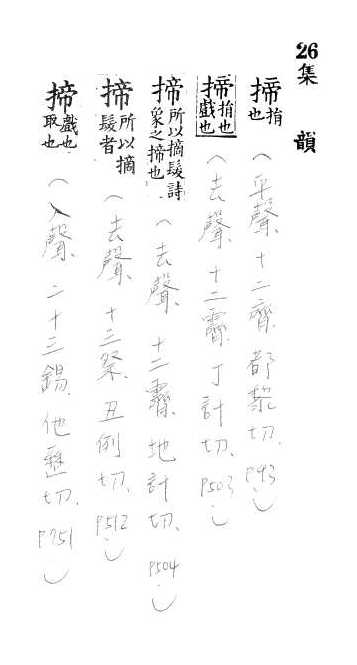 26集韻
揥㨖也(平聲、十二齊、都黎切、P.93)
揥㨖也戲也(去聲、十二霽、丁計切、P503)
揥所以摘髮詩象之揥也(去聲、十二霽、地計切、P504)
揥所以摘髮者(去聲、十三祭、丑例切、P512)
揥戲也取也(入聲、二十三錫、他歷切、P751)